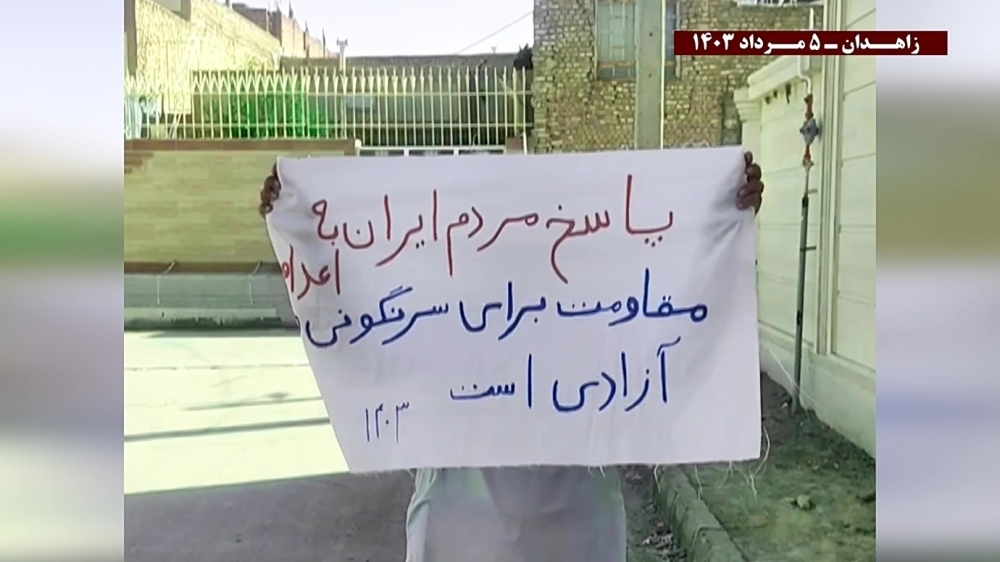 زاهـدان ـ ۵ مـرداد ۱۴۰۳
پاسخ مردم ایران به
اعدام
مقاومت برای سرنگونی
آزادی است
۱۴۰۳